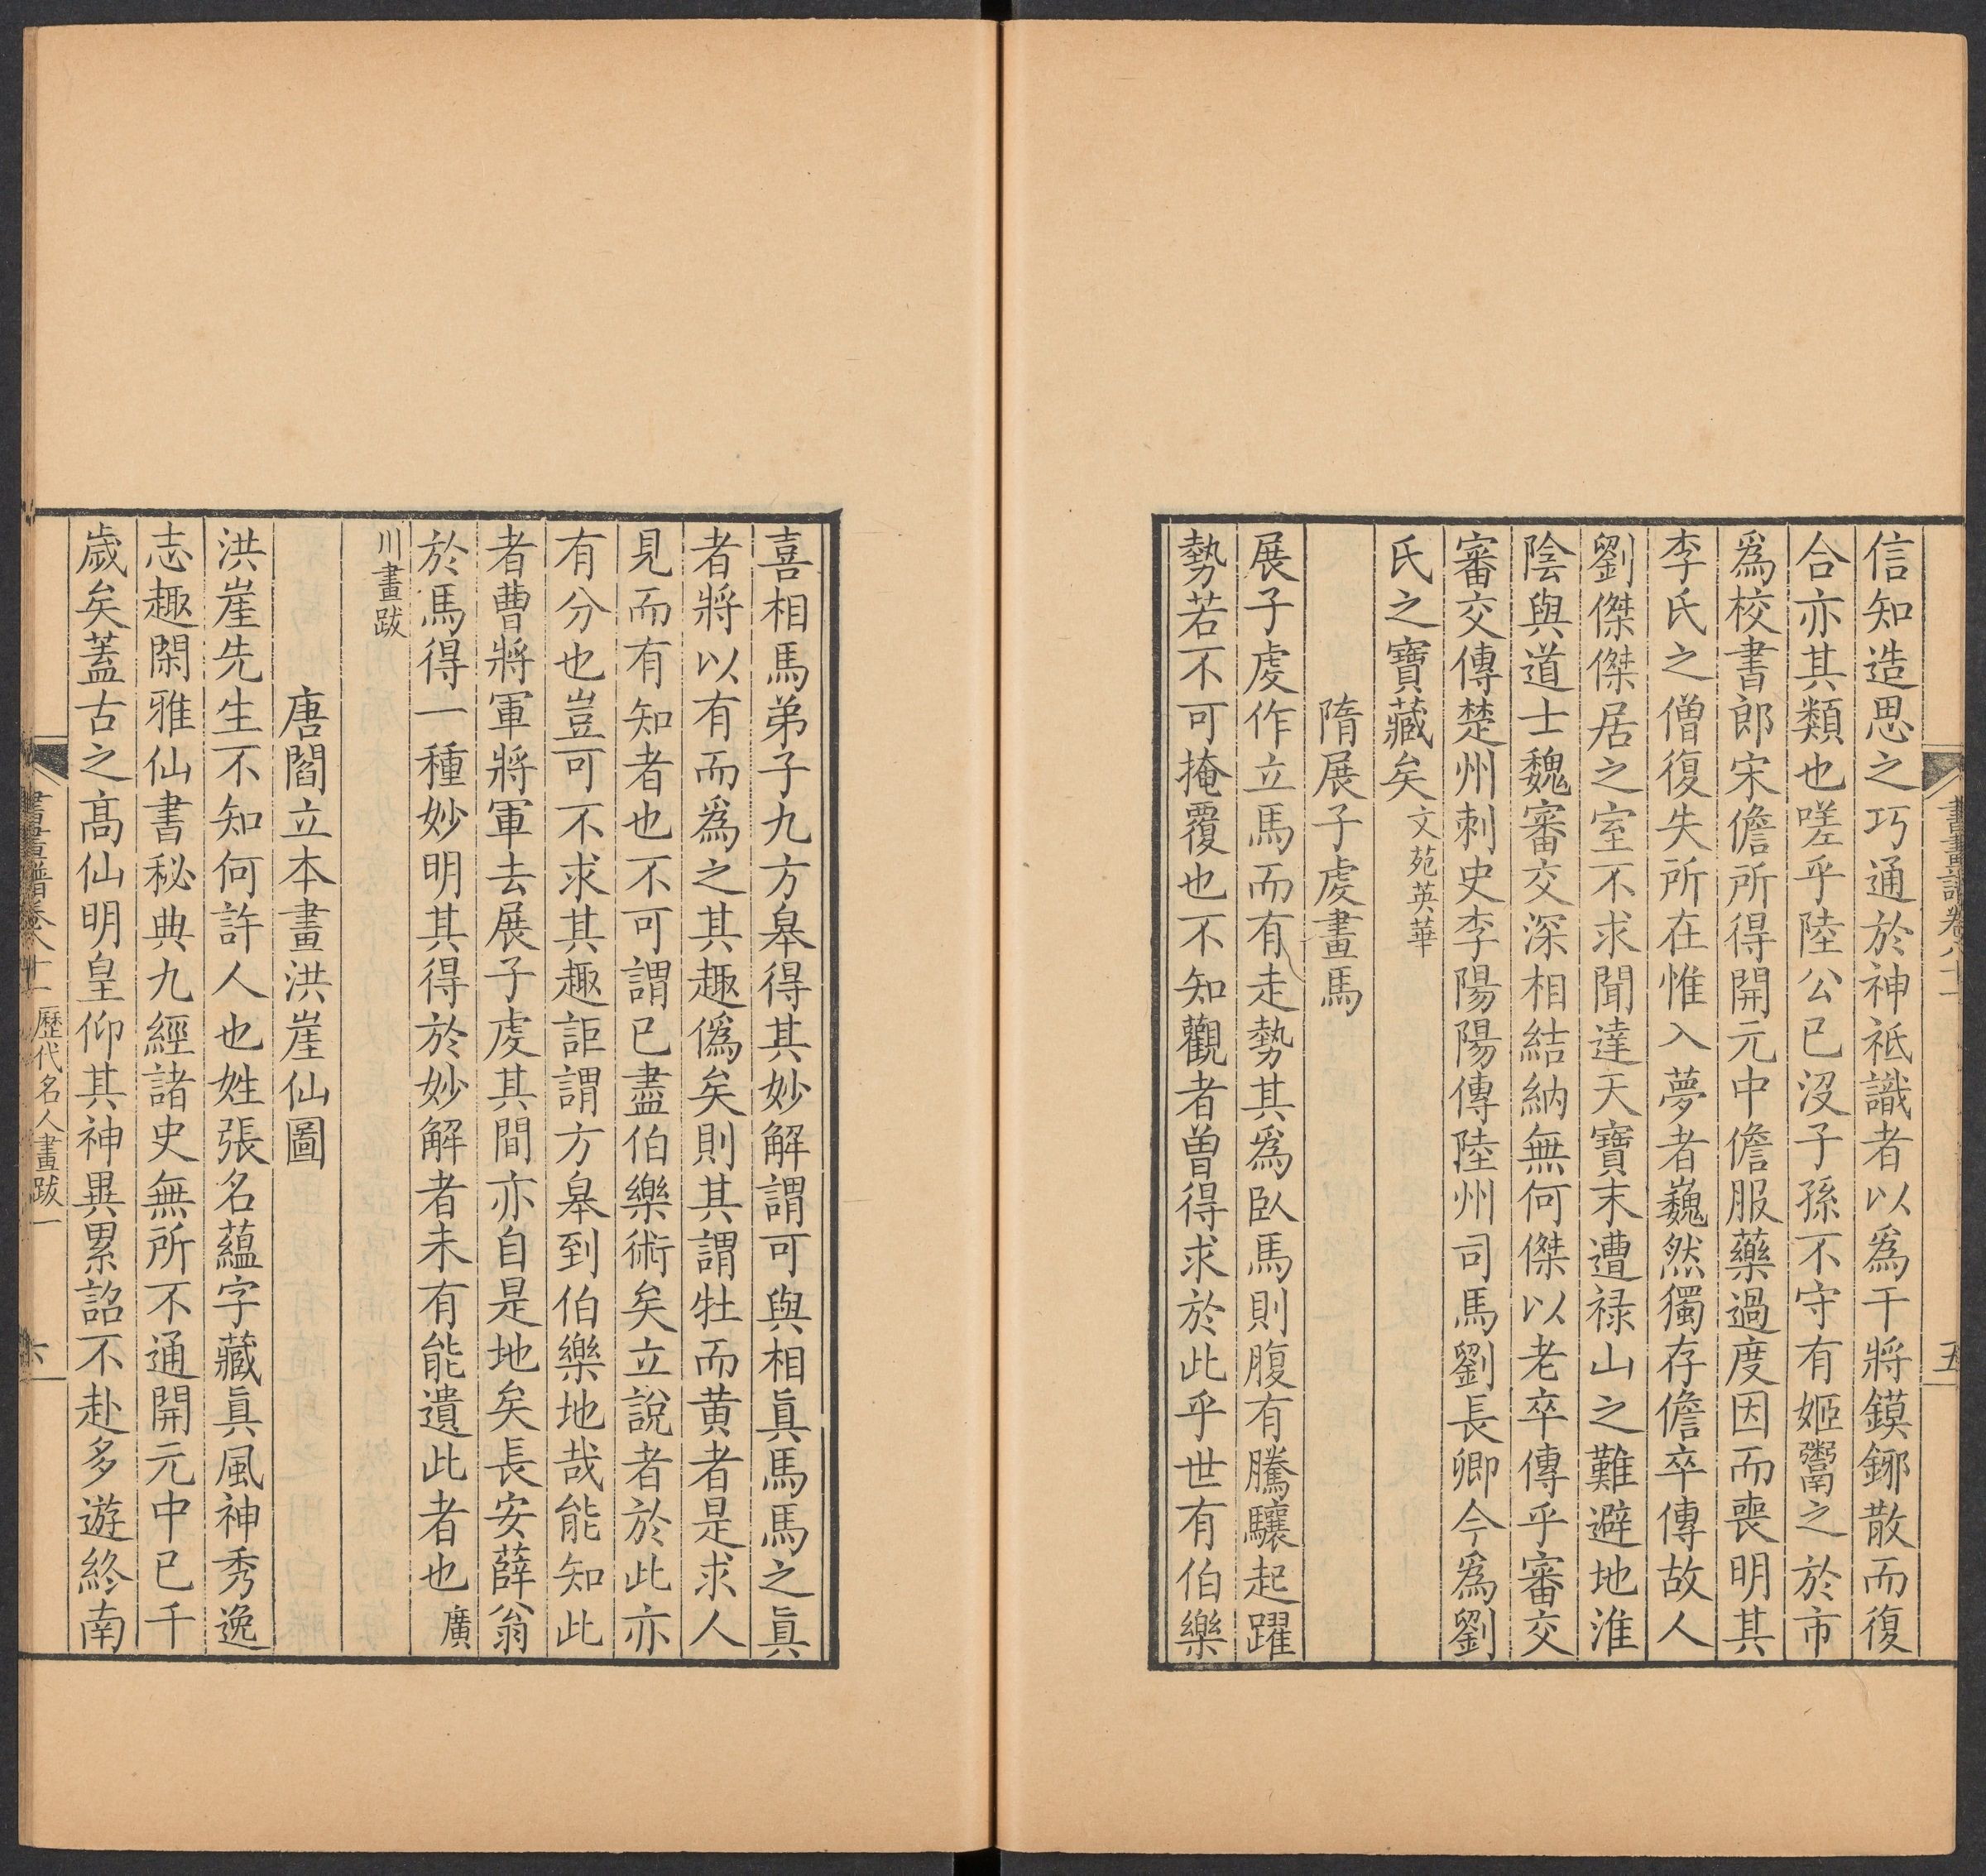 書畫譜卷八十一 五
信知造思之巧通於神祇識者以爲干將鏌鋣散而復
合亦其類也嗟乎陸公已沒子孫不守有姬鬻之於市
爲校書郎宋儋所得開元中儋服藥過度因而喪明其
李氏之僧復失所在惟入夢者巍然獨存儋卒傳故人
劉傑傑居之室不求聞達天寶末遭祿山之難避地淮
陰與道士魏審交深相結納無何傑以老卒傳乎審交
審交傳楚州刺史李陽陽傳陸州司馬劉長卿今爲劉
氏之寶藏矣文苑英華
隋展子虔畫馬
展子虔作立馬而有走勢其爲臥馬則腹有騰驤起躍
勢若不可掩覆也不知觀者曾得求於此乎世有伯樂
喜相馬弟子九方皋得其妙解謂可與相眞馬馬之眞
者將以有而爲之其趣僞矣則其謂牡而黄者是求人
見而有知者也不可謂已盡伯樂術矣立說者於此亦
有分也豈可不求其趣詎謂方皋到伯樂地哉能知此
者曹將軍將軍去展子虔其間亦自是地矣長安薛翁
於馬得一種妙明其得於妙解者未有能遺此者也廣
川畫跋
唐閻立本畫洪崖仙圖
洪崖先生不知何許人也姓張名蘊字藏眞風神秀逸
志趣閑雅仙書秘典九經諸史無所不通開元中已千
歲矣蓋古之高仙明皇仰其神異累詔不赴多遊終南
書畫譜卷八十一 歷代名人畫跋一 六